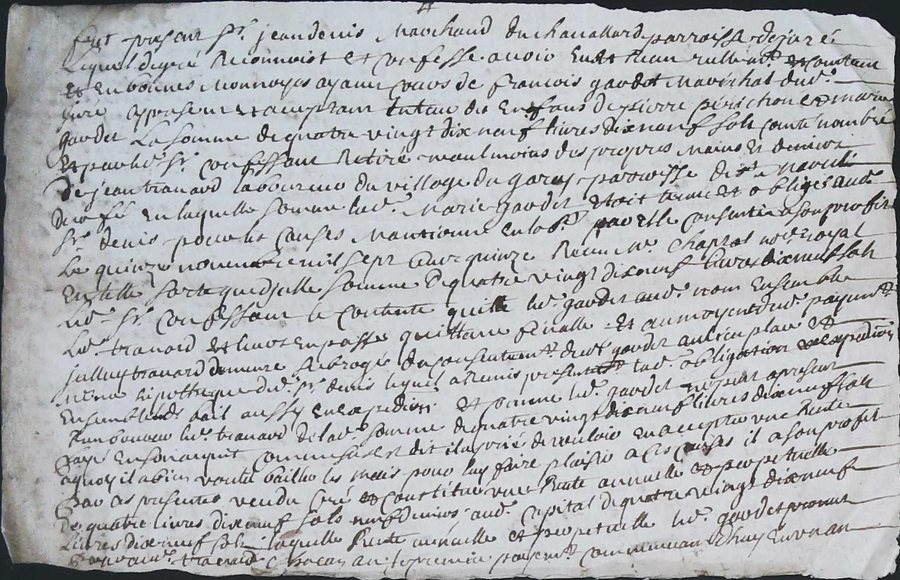 fust present Sr. jean denis Marchand du chavallard parroisse de juré
Lequel de gré Reconnoist et confesse avoir
Et En bonnes Monnoyes ayant cours de francois gaudet Marechal du
juré present et acceptant tuteur des Enfans de pierre perichon et marie
gaudet La somme de quatre vingt dix neuf livres dix neuf sols conté nombré
Et par led. Sr. confessant Retiré moulmoins des propres Mains Et deniers
De jean travard laboureur du village du garay parroisse de St. Marcel
durfé En laquelle somme lad. Marie gaudet Estoit tenue et obligée aud.
Sr. denis pour les causes Mantionné En lob. par Elle consentie a son proffit
Le quinze novembre mil sept cent quinze Receue Me. chaptal nore. royal
En telle sorte que dicelle somme de quatre vingt dix neuf livres dix neuf sols
Led. Sr. confessant se contente quitte led. gaudet aud. nom Ensemble
Led. travard Et leur En passe quittance finalle et au moyen dud. payement
jcelluy travard demeure subrogé du consentement dud. gaudet au lieu place et
hipotheque dud. Sr. denis lequel a Remis presentement lad. obligation
Ensemblement Bail aussy En Expedition Et comme led. gaudet ne peut a present
led. travard De lad. somme de quatre vingt dix neuf livres dix neuf sols
payé En son acquit comme sus est dit il a prié de vouloir En accepter une Rente
a quoy il a bien voulu bailler les mais pour luy faire plaisir a ces causes il a son proffit
par ces presentes vendu creé et constitué une Rente annuelle et perpetuelle
De quatre livres dix neuf sols neuf deniers aud. capital de quatre vingt dix neuf
Livres dix neuf sols laquelle Rente annuelle et perpetuelle led. gaudet promet
travard chacun an le premier payement commencant